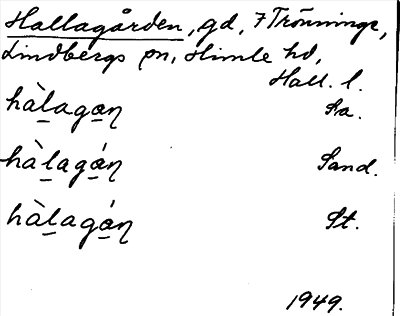 Hallagården, gd, 7 Trönninge,
Lindbergs sn, Himle hd,
Hall. l.
hàḻago̱ṇ Sa.
hàḻagó̱ṇ Sand.
hàḻagó̱ṇ St.
1949.